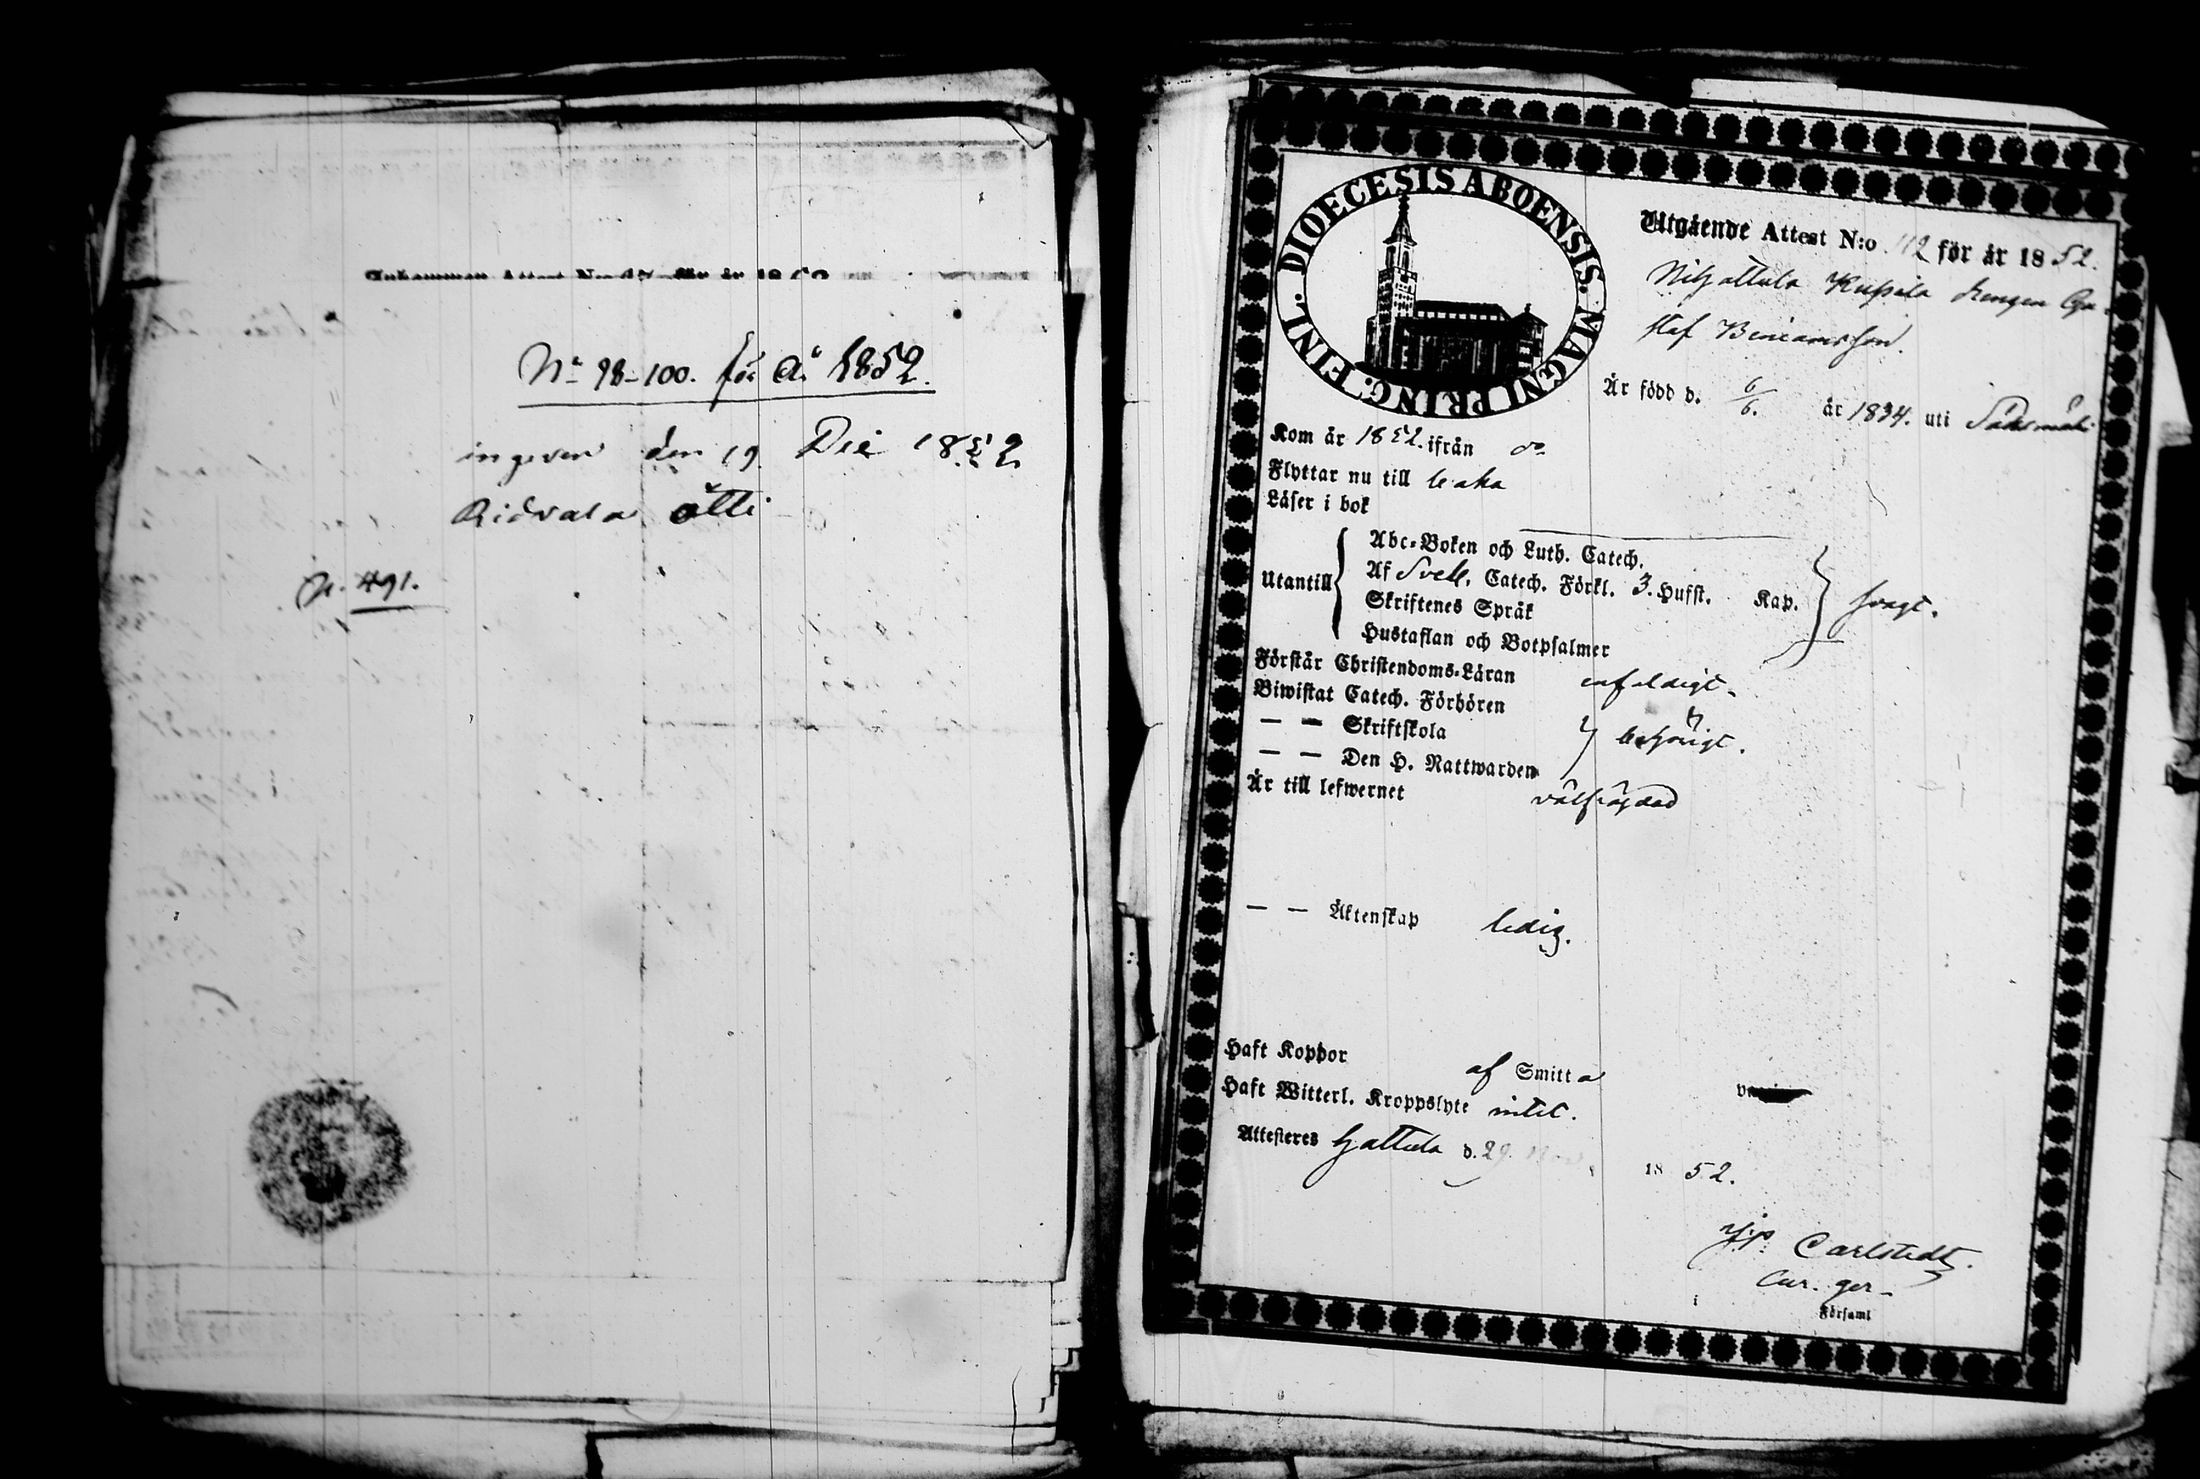 Inkommen Attest N:o för år 1852
N:o 98-100. för år 1852.
ingeven den 19 Die 1852
Ridvala Ötti
p. 491.
DIOECESIS ABOENSIS. MAGNI PRING. FINL.
Utgående Attest N:o 112 för år 1852.
Hattula drengen Gu-
staf Beniamsson.
Är född d. 6/6. år 1834. uti Sääxmäki
Kom år 1852. ifrån do
Flyttar nu till
Läser i bok
Utantill
Abc-Boken och Luth. Catech.
Af Sveb. Catech. Förkl. 3. Hufst. Kap.
Skriftenes Språk
Hustaflan och Botpsalmer
svagt.
Förstår Christendoms-Läran enfaldigt.
Biwistat Catech. Förhören
— — Skriftskola
behörigt.
— — Den H. Nattwarden
Är till lefwernet välfrägdad
— — Äktenskap ledig.
Haft Koppor af Smitta
Haft Witterl. Kroppslyte intet.
Attesteres Hattula d. 29. Nov. 1852.
Carlstedt.
Cur. ger.
i Församl